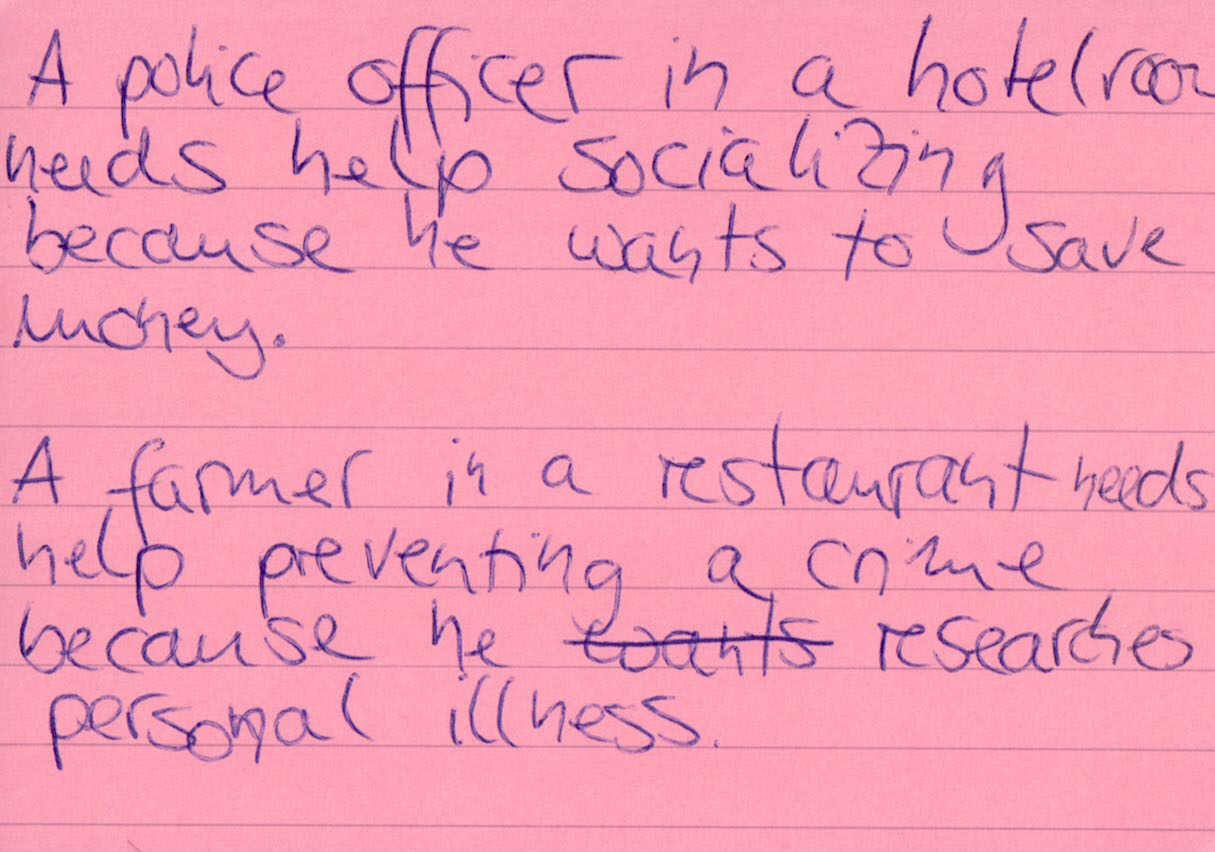 A police officer in a hotelroom
needs help socializing
because he wants to save
money.
A farmer in a restaurant needs
help preventing a crime
because he wants researches
personal illness.